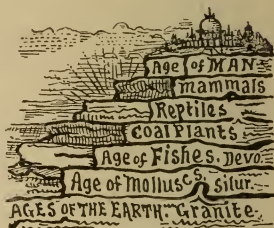 Age of MAN
mammals
Reptiles
Coal Plants
Age of Fishes. Devo.
Age of Molluscs. Silur.
AGES OF THE EARTH. Granite.